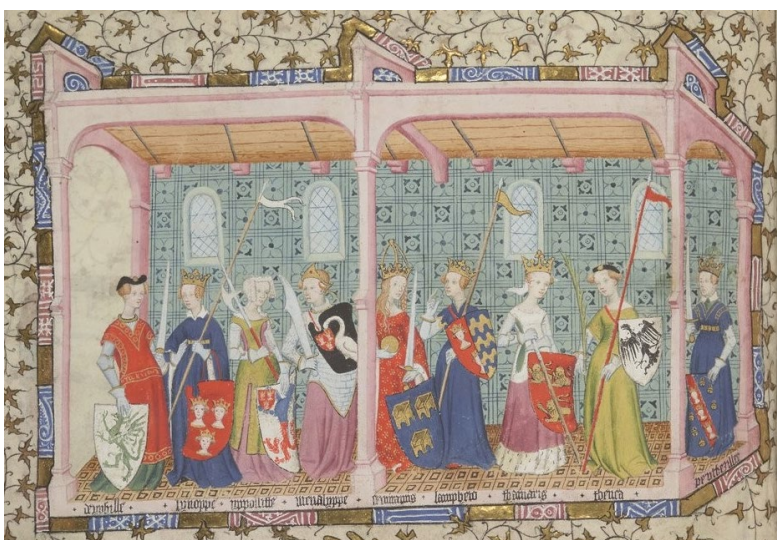 deyphille synoppe yppolitte menalyppe semiramis lampheto thamaris theuca